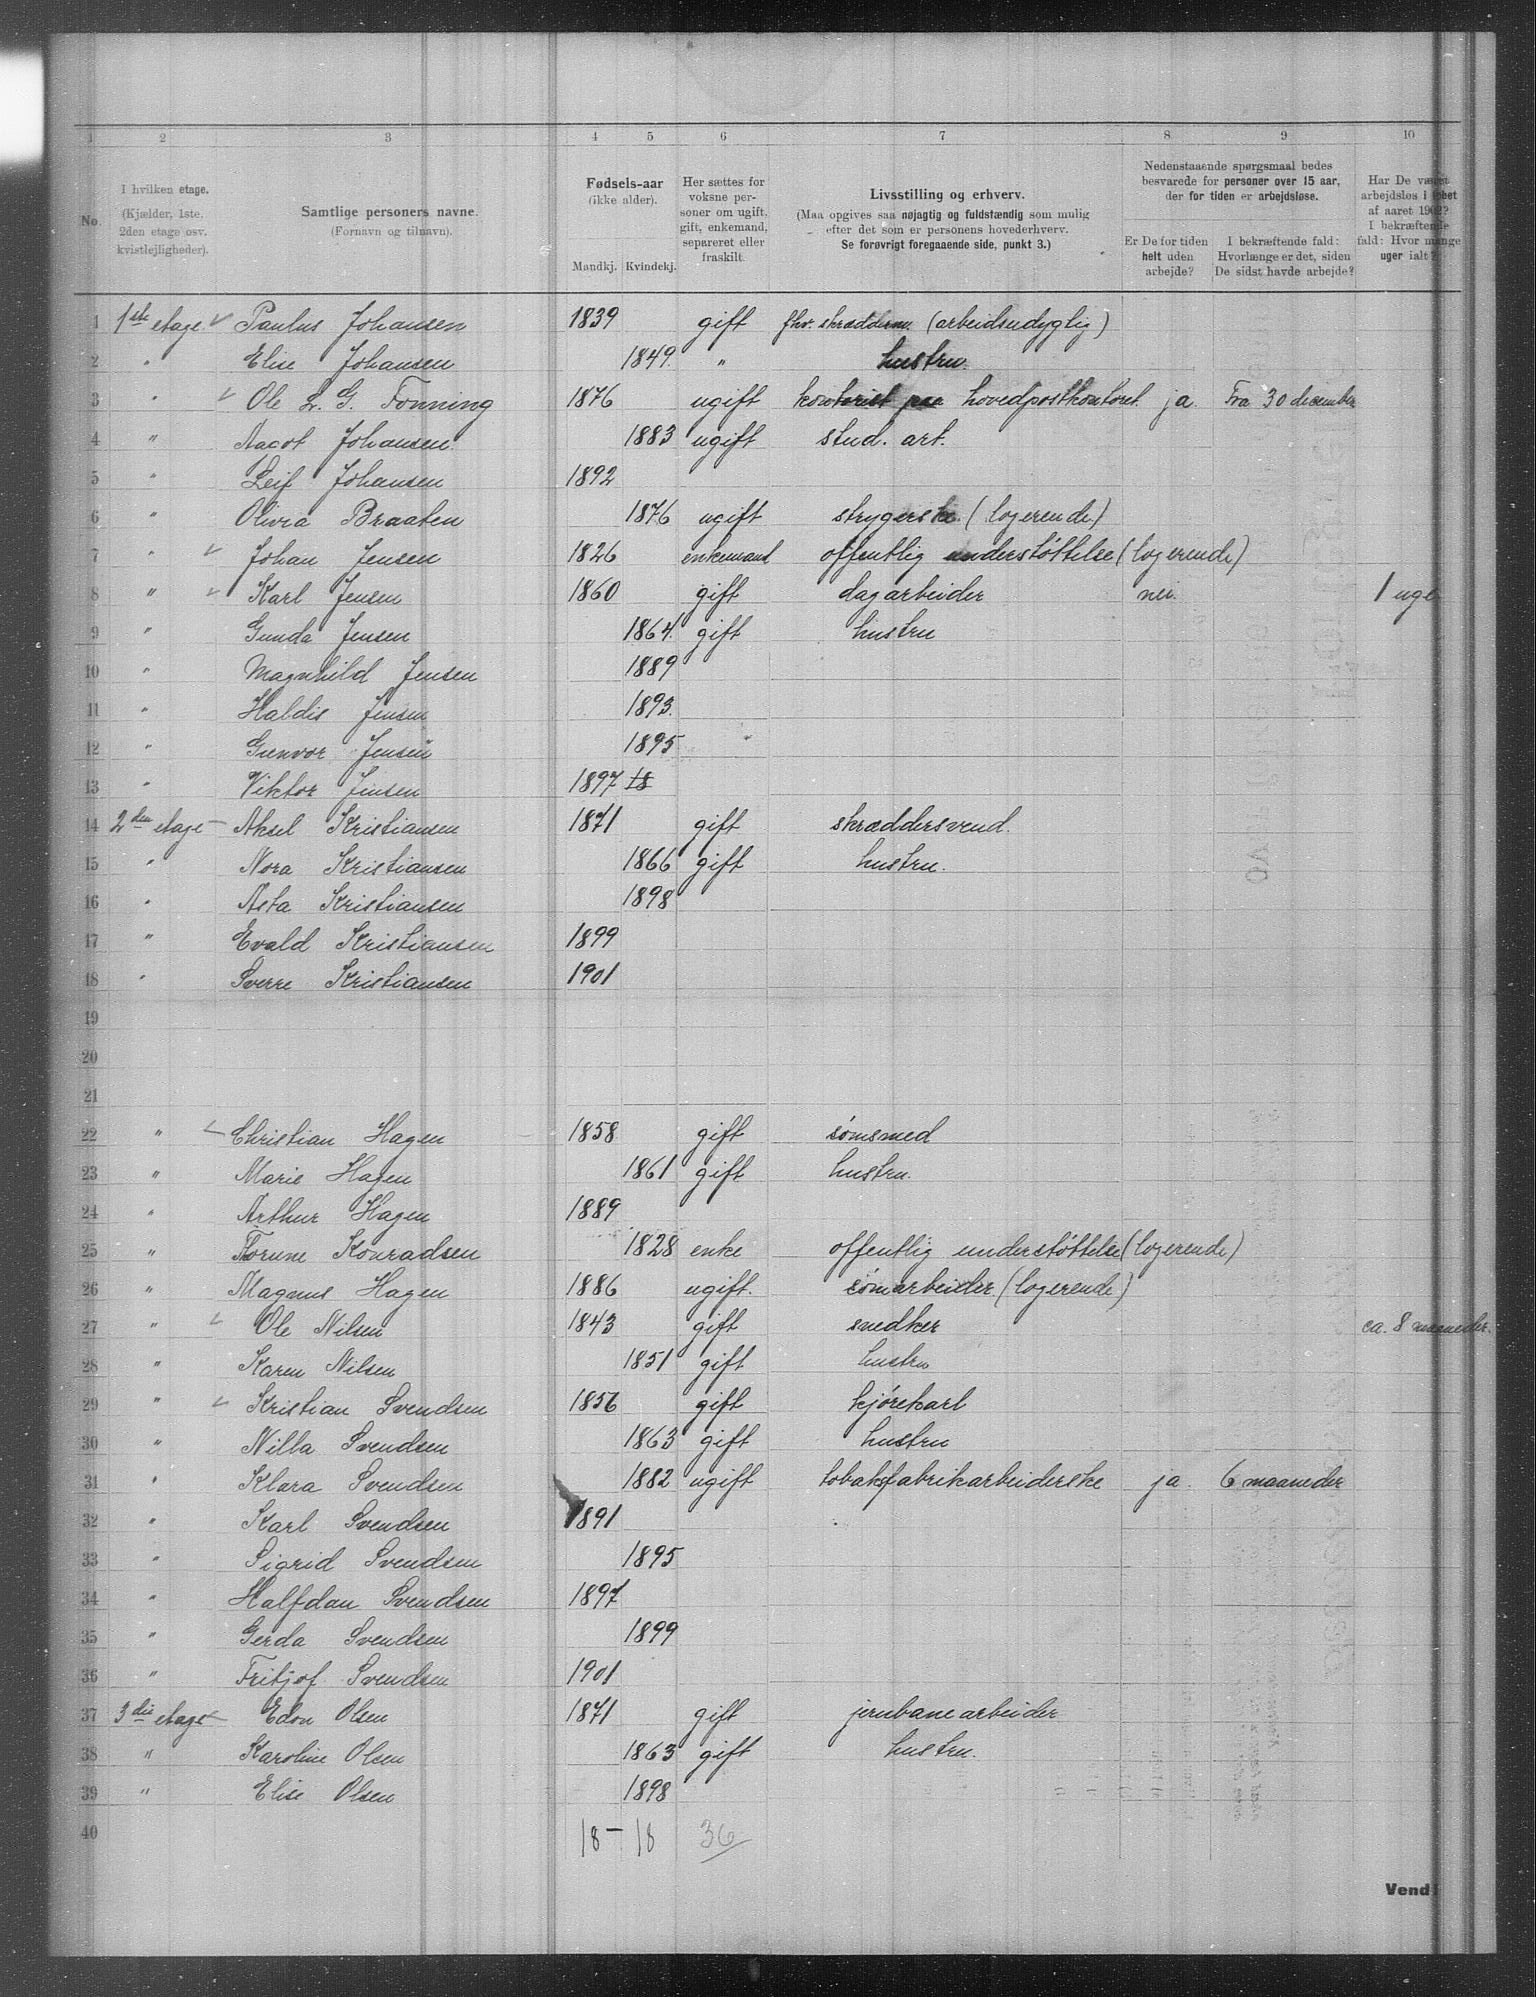 1 2 3 4 5 6 7 8 9 10
No.
I hvilken etage.
(Kjælder, 1ste,
2den etage osv.
kvistlejligheder).
Samtlige personers navne.
(Fornavn og tilnavn).
Fødsels-aar
(ikke alder).
Mandkj. Kvindekj.
Her sættes for
voksne per-
soner om ugift,
gift, enkemand,
separeret eller
fraskilt.
Livsstilling og erhverv.
(Maa opgives saa nøjagtig og fuldstændig som mulig
efter det som er personens hovederhverv.
Se forøvrigt foregaaende side, punkt 3.)
Nedenstaaende spørgsmaal bedes
besvarede for personer over 15 aar,
der for tiden er arbejdsløse.
Er De for tiden
helt uden
arbejde?
I bekræftende fald:
Hvorlænge er det, siden
De sidst havde arbejde?
Har De været
arbejdsløs i løbet
af aaret 1902?
I bekræftende
fald: Hvor mange
uger ialt?
1 1ste etage Paulus Johansen 1839 gift fhv. skrædderm. (arbeidsudyglig)
2 " Elise Johansen 1849. " hustru.
3 " Ole L. G. Fonning 1876 ugift kontorist paa hovedpostkontoret ja. Fra 30 december
4 " Aagot Johansen. 1883 ugift stud. art.
5 " Leif Johansen 1892
6 " Olivia Braaten 1876 ugift strygerske. (logerende)
7 " Johan Jensen 1826 enkemand offentlig understøttelse (logerende)
8 " Karl Jensen 1860 gift dagarbeider nei. 1 uge
9 " Gunda Jensen 1864. gift hustru
10 " Magnhild Jensen 1889
11 " Haldis Jensen 1893.
12 " Gunvor Jensen 1895
13 " Viktor Jensen 1897 18
14 2den etage Aksel Kristiansen 1871 gift skræddersvend.
15 " Nora Kristiansen 1866 gift hustru.
16 " Asta Kristiansen 1898
17 " Evald Kristiansen 1899
18 " Sverre Kristiansen 1901
19
20
21
22 " Christian Hagen 1858 gift sømsmed
23 " Marie Hagen 1861 gift hustru.
24 " Arthur Hagen 1889
25 " Torine Konradsen 1828 enke offentlig understøttelse (logerende)
26 " Magnus Hagen 1886 ugift. sømarbeider. (logerende)
27 " Ole Nilsen 1843 gift snedker ca. 8 maaneder.
28 " Karen Nilsen 1851 gift hustru
29 " Kristian Svendsen 1856 gift kjørekarl
30 " Nilla Svendsen 1863 gift hustru
31 " Klara Svendsen 1882 ugift tobaksfabrikarbeiderske ja. 6 maaneder
32 " Karl Svendsen 1891
33 " Sigrid Svendsen 1895
34 " Halfdan Svendsen 1897
35 " Gerda Svendsen 1899
36 " Fritjof Svendsen 1901
37 3die etage Edon Olsen 1871 gift jernbanearbeider
38 " Karoline Olsen 1863 gift hustru.
39 " Elise Olsen 1898
40 18 – 18 36
Vend!